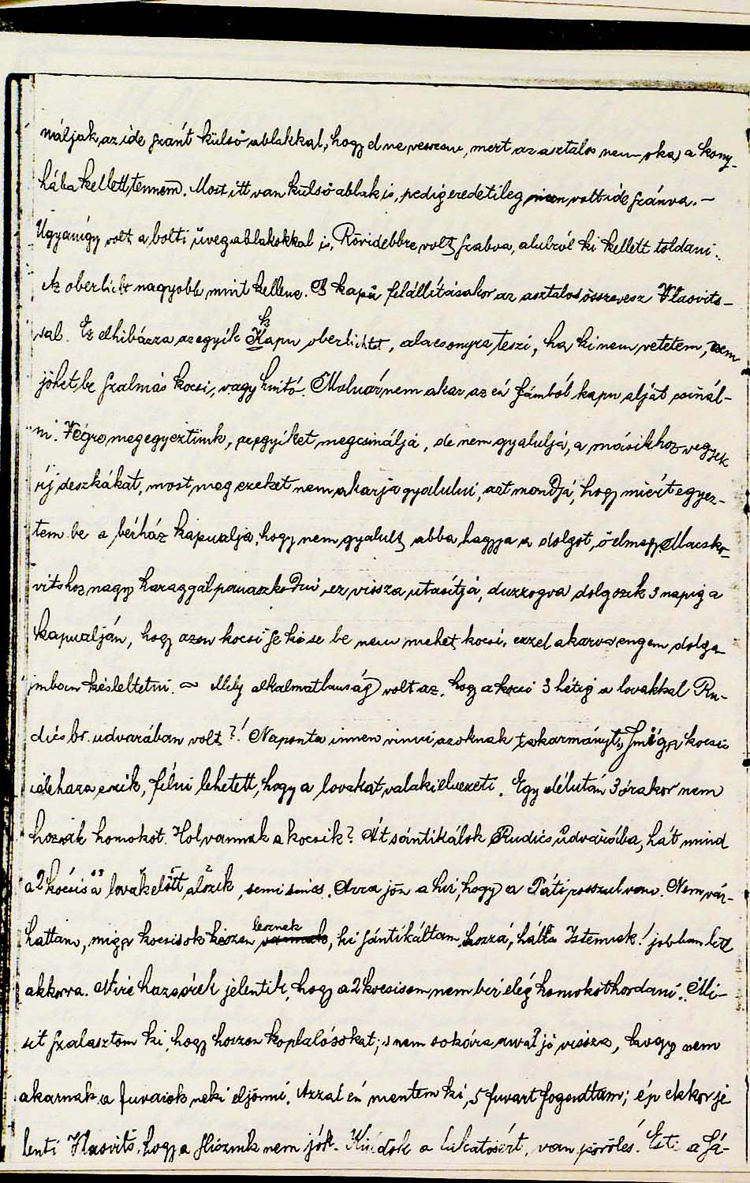 náljak az ide szánt külső ablakkal, hogy el ne vesszen, mert az asztalos nem oka, a kony-
hába kellett tennem. Most itt van külső ablak is, pedig eredetileg nem volt ide szánva. –
Ugyanígy volt a bolti üvegablakokkal is, Rövidebbre volt szabva, alulról ki kellett toldani.
Az oberlicht nagyobb, mint kellene. A kapu felállításakor az asztalos összevesz Vlasvits-
sal. Ez elhibázza az egyik Kapu oberlichtet, alacsonyra teszi, ha ki nem vetetem, nem
jöhet be szalmás kocsi, vagy hintó. Molnár nem akar az én fámból kapu alját csinál-
ni. Végre megegyeztünk, egyiket megcsinálja, de nem gyalulja, a másikhoz vegyek
új deszkákat, most meg ezeket nem akarja gyalulni, azt mondja, hogy miért egyez-
tem be a bérház kapualja, hogy nem gyalult, abba hagyja a dolgot, ő elmegy Macsko-
vitshoz nagy haraggal panaszkodni ez vissza utasítja, duzzogva dolgozik 3 napig a
kapualján, hogy azon kocsi se ki se be nem mehet kocsi, ezzel akarva engem dolga-
imban késleltetni. ~ Mely alkalmatlanság volt az, hogy a kocsi 3 hétig a lovakkal Ru-
dics br. udvarában volt?! Naponta innen vinni azoknak takarmányt, s míg a kocsis
ide haza eszik, félni lehetett, hogy a lovakat valaki elvezeti. Egy délután 3 órakor nem
hoznak homokot. Hol vannak a kocsik? Át sántikálok Rudics udvarába, hát mind
a 2 kocsis a lovak előtt alszik, semi sincs. Arra jön a hir, hogy a Táti rosszul van. Nem vár-
hattam, mig a kocsisok készen lesznek, ki sántikáltam hozzá, hála Istennek! jobban lett
akkorra. Mire hazaérek jelentik, hogy a 2 kocsisom nem bir elég homokot hordani. Mi-
sit szalasztom ki, hogy hozzon koplalósokat; s nem sokára azzal jö vissza, hogy nem
akarnak a fuvarok neki eljönni. Azzal én mentem ki, 5 fuvart fogadtam; ép ekkor je
lenti Vlasvits, hogy a sliccnik nem jók. Küldök a lakatosért, van pörölés. Esti a